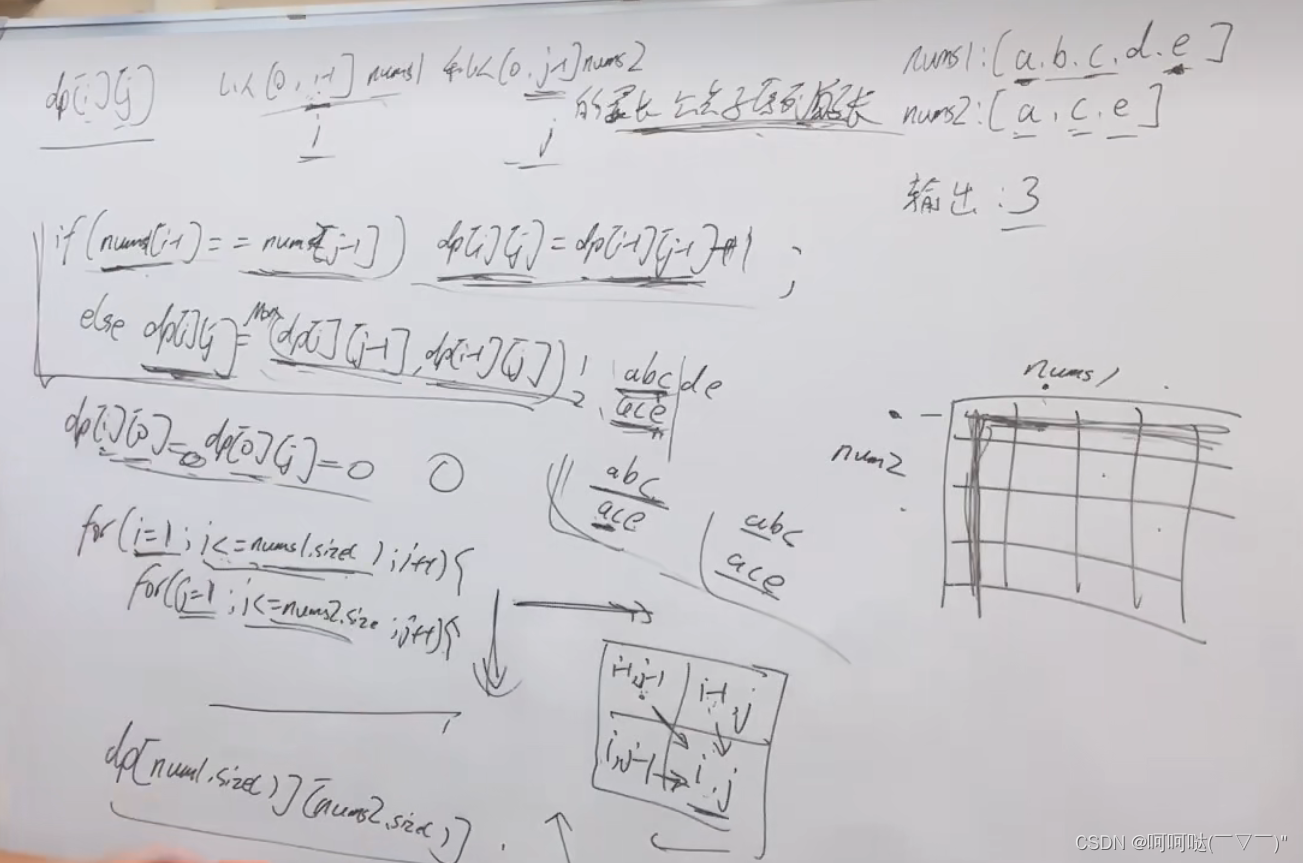 dp[i][j] 以[0, i-1] nums1 和以[0, j-1]nums2
的最长公共子序列 长
i j
nums1:[a.b.c.d.e]
nums2:[a.c.e]
输出:3
if(nums1[i-1]==nums2[j-1]) dp[i][j]=dp[i-1][j-1]+1;
else dp[i][j]=max(dp[i][j-1],dp[i-1][j]);
abc|de
ace
dp[i][0]=0 dp[0][j]=0 0
abc
ace
abc
ace
for(i=1;i<=nums1.size();i++){
for(j=1;j<=nums2.size;j++){
nums1
nums2
i-1,j-1 i-1,j
i,j-1 i,j
dp[num1.size()][nums2.size()]
CSDN @呵呵哒(￣▽￣)"